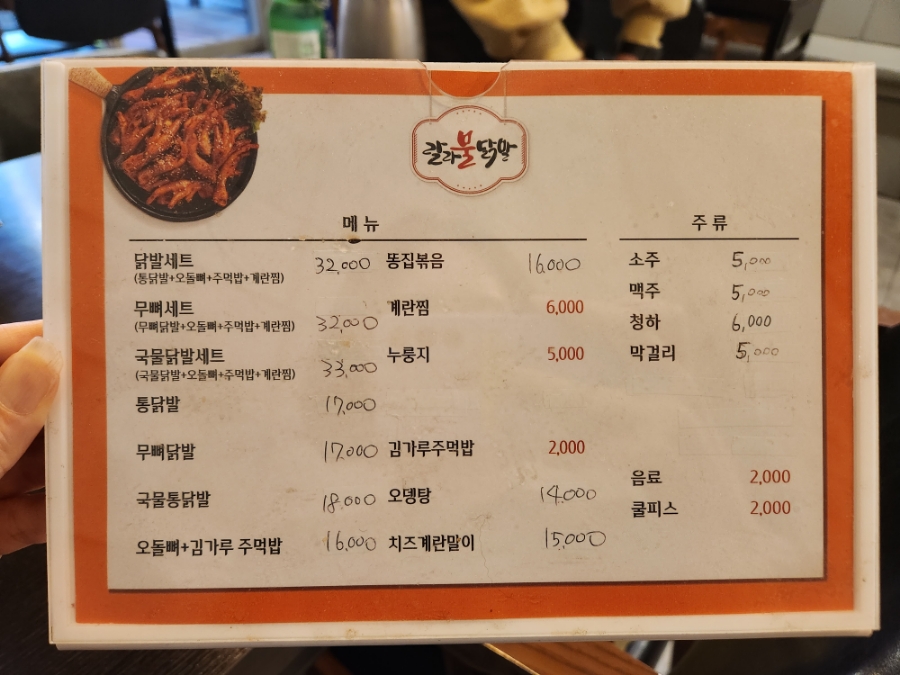 칼라불닭발
메뉴
닭발세트 32,000
(통닭발+오돌뼈+주먹밥+계란찜)
무뼈세트 32,000
(무뼈닭발+오돌뼈+주먹밥+계란찜)
국물닭발세트 33,000
(국물닭발+오돌뼈+주먹밥+계란찜)
통닭발 17,000
무뼈닭발 17,000
국물통닭발 18,000
오돌뼈+김가루 주먹밥 16,000
똥집볶음 16,000
계란찜 6,000
누룽지 5,000
김가루주먹밥 2,000
오뎅탕 14,000
치즈계란말이 15,000
주류
소주 5,000
맥주 5,000
청하 6,000
막걸리 5,000
음료 2,000
쿨피스 2,000